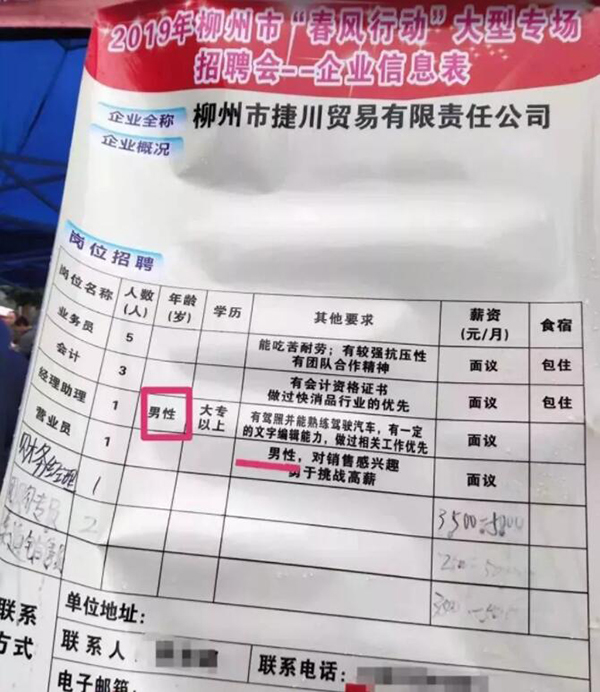 2019年柳州市“春风行动”大型专场
招聘会--企业信息表
企业全称 柳州市捷川贸易有限责任公司
企业概况
岗位招聘
岗位名称 人数(人) 年龄(岁) 学历 其他要求 薪资(元/月) 食宿
业务员 5 能吃苦耐劳；有较强抗压性 有团队合作精神 面议 包住
会计 3 有会计资格证书 做过快消品行业的优先 面议 包住
经理助理 1 男性 大专以上 有驾照并能熟练驾驶汽车，有一定的文字编辑能力，做过相关工作优先 面议
营业员 1 男性，对销售感兴趣 勇于挑战高薪 面议
财务经理 1 3500-5000
2
单位地址：
联系方式
联系人
联系电话：
电子邮箱